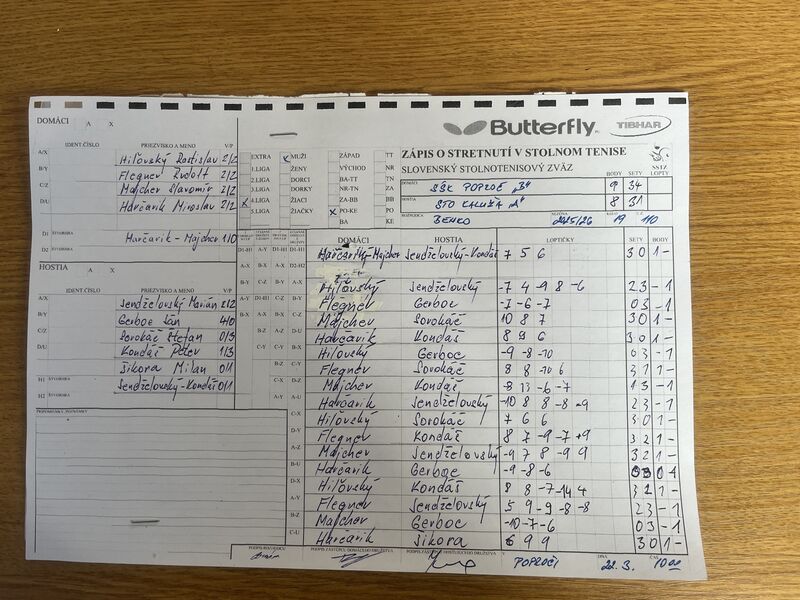 DOMÁCI A X
Butterfly TIBHAR
ZÁPIS O STRETNUTÍ V STOLNOM TENISE
SLOVENSKÝ STOLNOTENISOVÝ ZVÄZ
IDENT.ČÍSLO PRIEZVISKO A MENO V/P
A/X Hiľovský Rastislav 2/2
B/Y Flegner Rudolf 2/2
C/Z Majcher Slavomír 2/2
D/U Harčarik Miroslav 2/2
D1 ŠTVORHRA Harčarik - Majcher 1/0
D2 ŠTVORHRA
EXTRA x MUŽI ZÁPAD TT
1.LIGA ŽENY VÝCHOD NR
2.LIGA DORCI BA-TT TN
3.LIGA DORKY NR-TN ZA
x 4.LIGA ŽIACI ZA-BB BB
5.LIGA ŽIAČKY x PO-KE PO
BA KE
BODY SETY LOPTY
DOMÁCI SŠK POPROČ "B" 9 34
HOSTIA STO KALUŠA "A" 8 31
BENKO 2025/26 19 110
HOSTIA A X
IDENT.ČÍSLO PRIEZVISKO A MENO V/P
A/X Sendželovský Marián 2/2
B/Y Gerboc Ján 4/0
C/Z Sorokáč Štefan 0/3
D/U Kondáš Peter 1/3
Šikora Milan 0/1
H1 ŠTVORHRA Sendželovský-Kondáš 0/1
H2 ŠTVORHRA
PRIPOMIENKY, POZNÁMKY
DOMÁCI HOSTIA LOPTIČKY SETY BODY
Harčarik-Majcher Sendželovský-Kondáš 7 5 6 3 0 1 -
Hiľovský Sendželovský -7 4 -9 8 -6 2 3 - 1
Flegner Gerboc -7 -6 -7 0 3 - 1
Majcher Sorokáč 10 8 7 3 0 1 -
Harčarik Kondáš 8 9 6 3 0 1 -
Hiľovský Gerboc -9 -8 -10 0 3 - 1
Flegner Sorokáč 8 8 -10 6 3 1 1 -
Majcher Kondáš -8 13 -6 -7 1 3 - 1
Harčarik Sendželovský -10 8 8 -8 -9 2 3 - 1
Hiľovský Sorokáč 7 6 6 3 0 1 -
Flegner Kondáš 8 7 -9 -7 9 3 2 1 -
Majcher Sendželovský -9 7 8 -9 9 3 2 1 -
Harčarik Gerboc -9 -8 -6 0 3 0 1
Hiľovský Kondáš 8 8 -7 -14 4 3 2 1 -
Flegner Sendželovský 5 9 -9 -8 -8 2 3 - 1
Majcher Gerboc -10 -7 -6 0 3 - 1
Harčarik Šikora 6 9 9 3 0 1 -
PODPIS ROZHODCU PODPIS ZÁSTUPCU DOMÁCEHO DRUŽSTVA PODPIS ZÁSTUPCU HOSŤUJÚCEHO DRUŽSTVA V POPROČI DŇA 22.3. ČAS 10 00